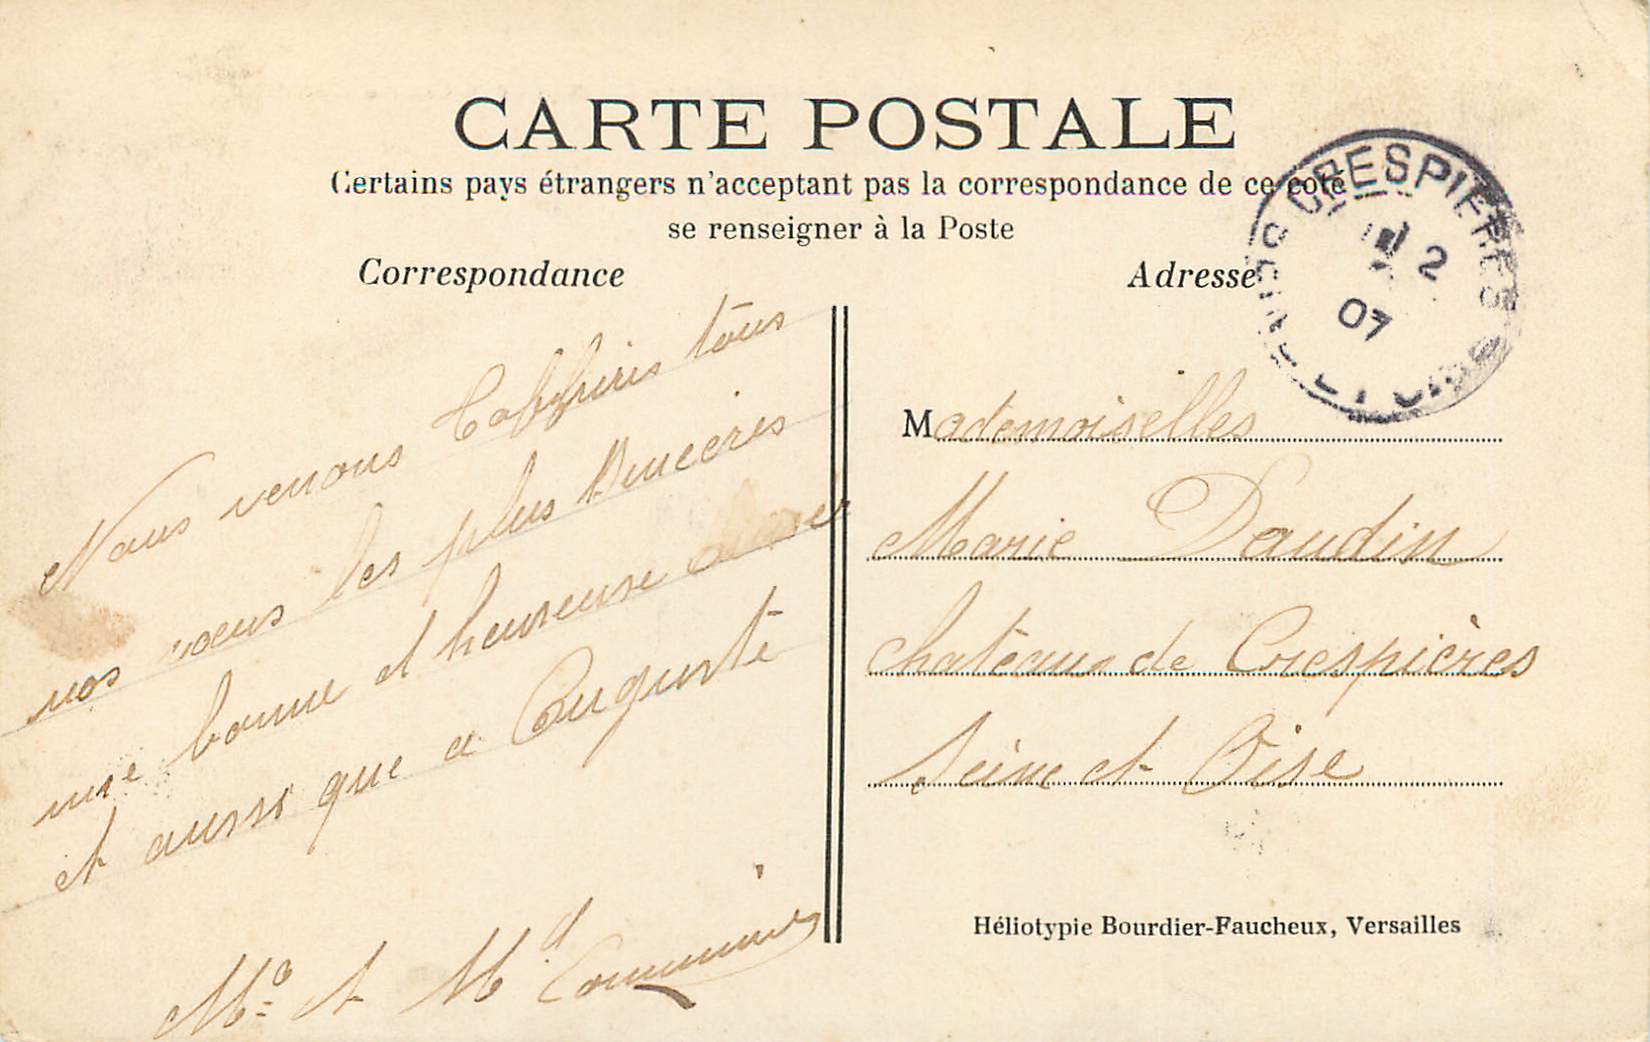 CARTE POSTALE
Certains pays étrangers n'acceptant pas la correspondance de ce coté
se renseigner à la Poste
Correspondance
Nous venons tous
nos voeus les plus
une bonne et heureuse
et aussi que a Auguste
Mr et Md
Adresse
CRESPIÈRES
2
07
SEINE ET OISE
Mademoiselles
Marie Daudin
chateau de Crespières
Seine et Oise
Héliotypie Bourdier-Faucheux, Versailles